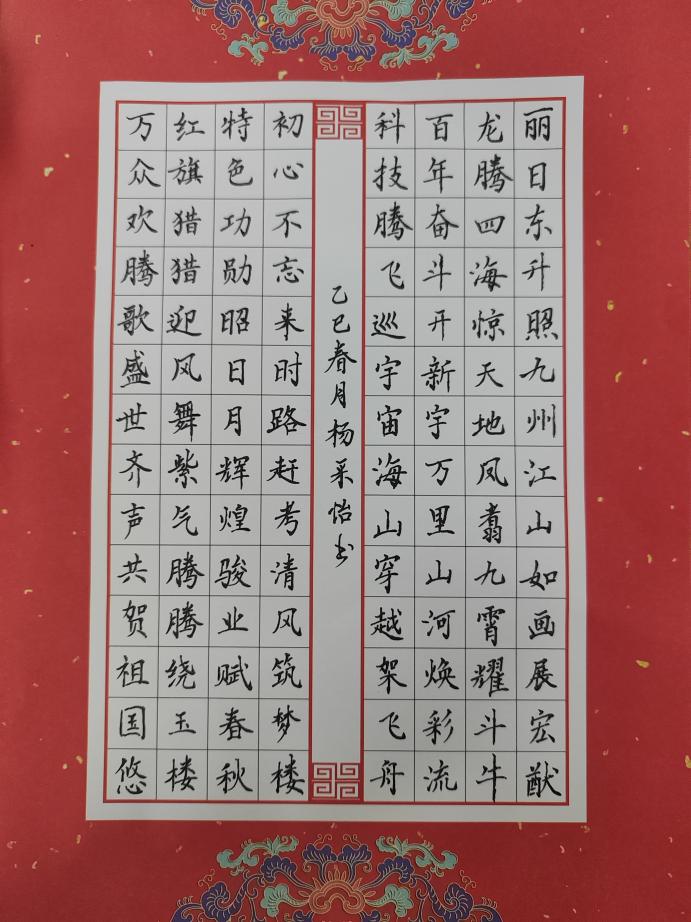 丽日东升照九州江山如画展宏猷
龙腾四海惊天地凤翥九霄耀斗牛
百年奋斗开新宇万里山河焕彩流
科技腾飞巡宇宙海山穿越架飞舟
乙巳春月杨采怡书
初心不忘来时路赶考清风筑梦楼
特色功勋昭日月辉煌骏业赋春秋
红旗猎猎迎风舞紫气腾腾绕玉楼
万众欢腾歌盛世齐声共贺祖国悠